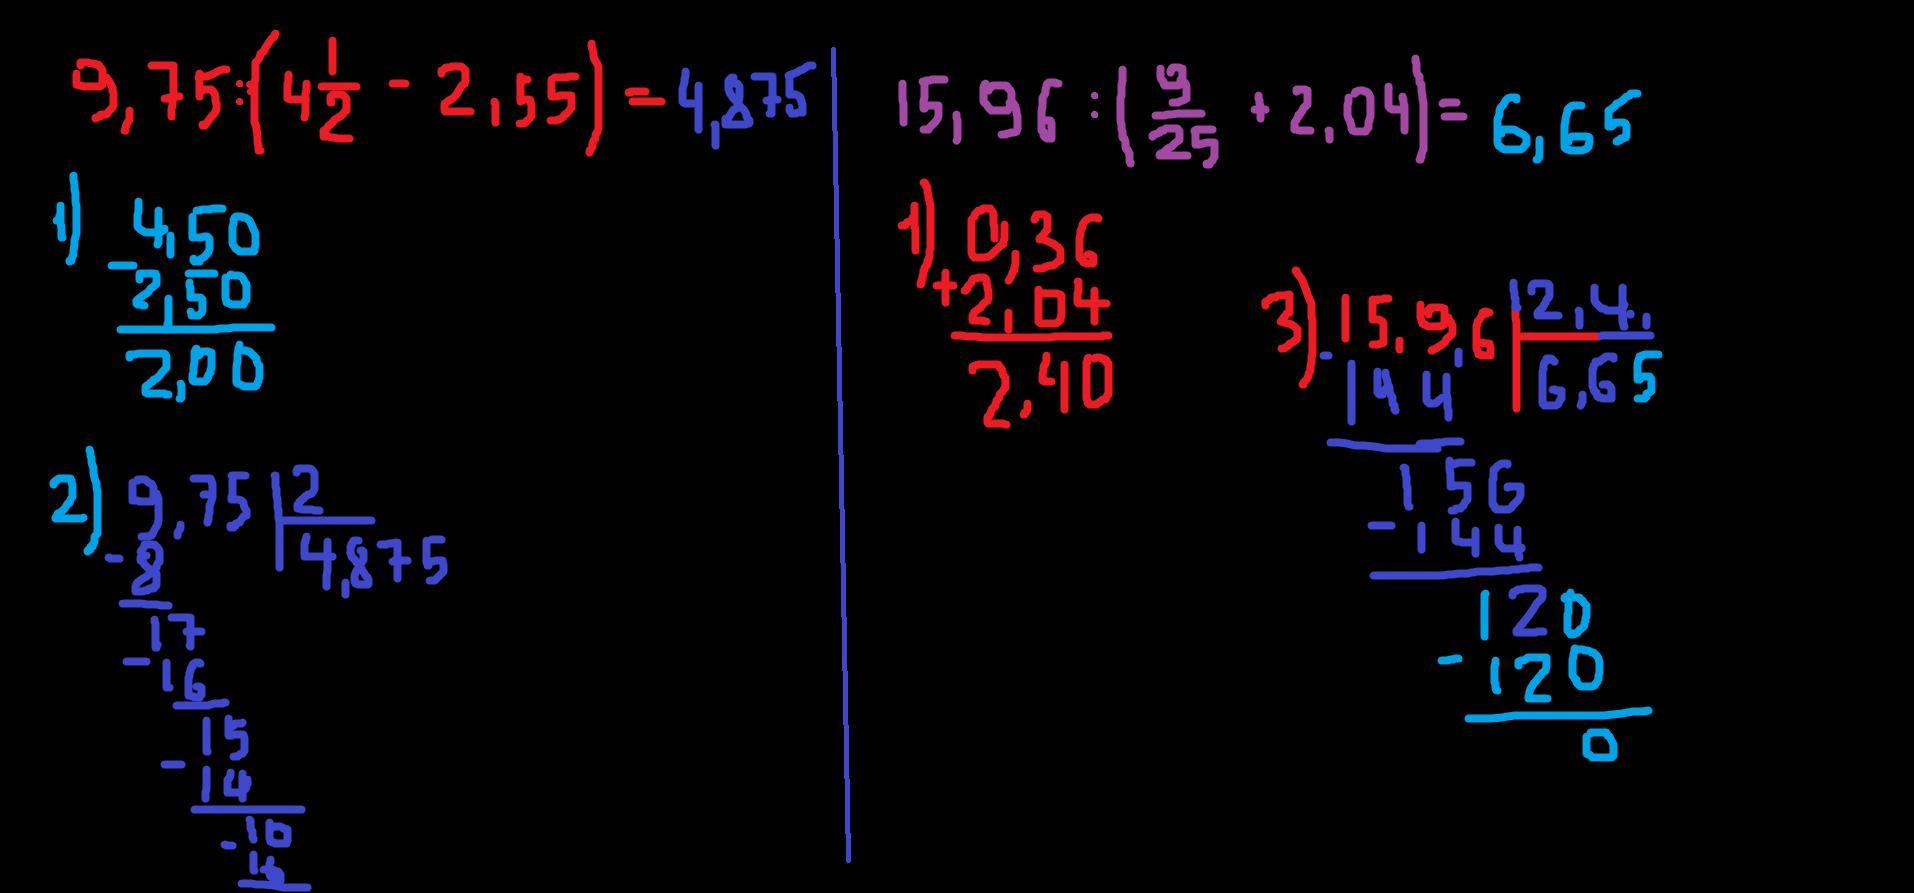 9,75:(4 1/2 - 2,55) = 4,875
1) 4,50
- 2,50
2,00
2) 9,75 | 2
- 8 | 4,875
17
- 16
15
- 14
- 10
10
15,96 : (9/25 + 2,04) = 6,65
1) 0,36
+ 2,04
2,40
3) 15,9,6 | 2,4,
- 144 | 6,65
156
- 144
120
- 120
0